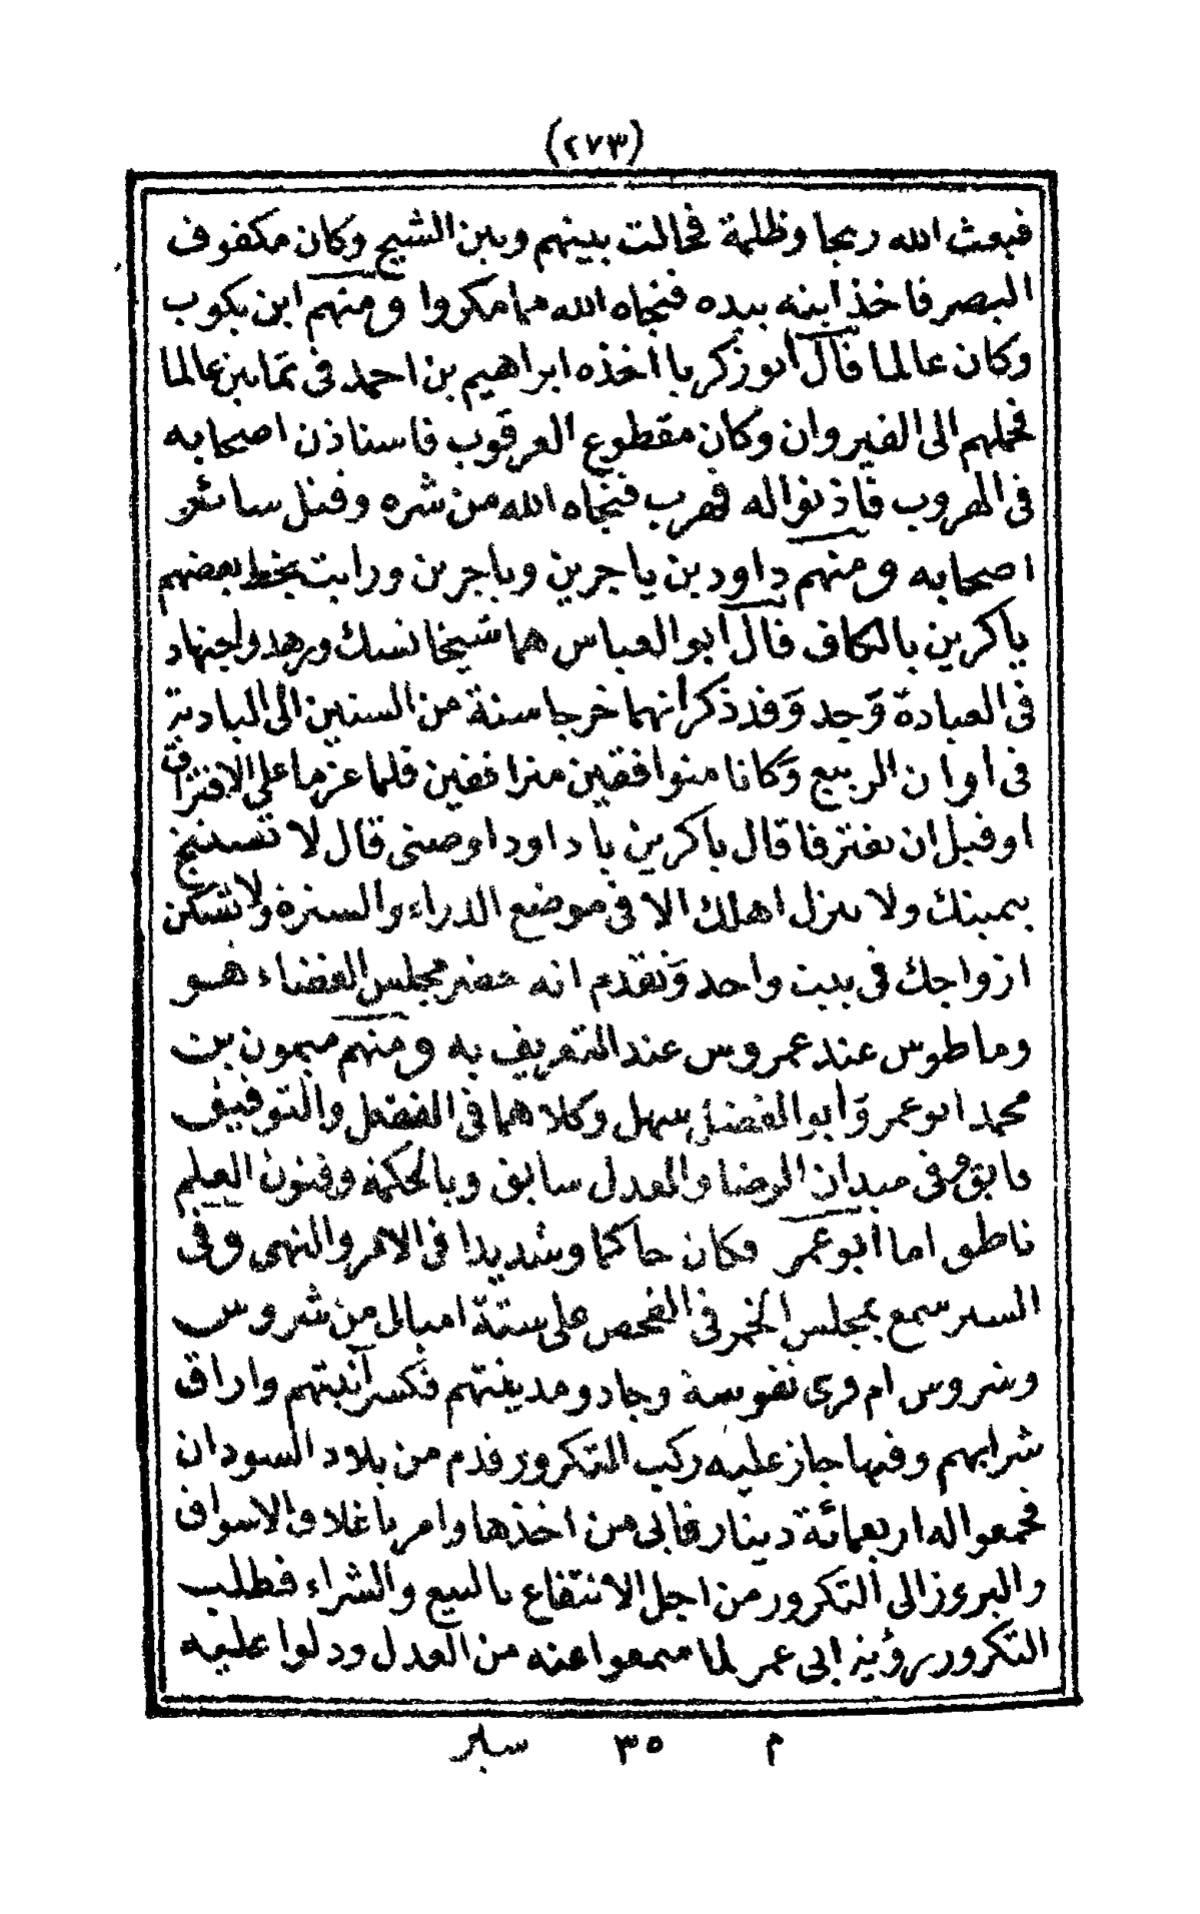 (٢٧٣)
فبعث الله ريحا وظلمة فحالت بينهم وبين الشيخ وكان مكفوف
البصر فاخذ ابنه بيده فنجاه الله مما مكروا ومنهم ابن يكوب
وكان عالما قال ابو زكريا اخذه ابراهيم بن احمد في ثمانين عالما
فحملهم الى القيروان وكان مقطوع العرقوب فاستاذن اصحابه
في الهروب فاذنوا له فهرب فنجاه الله من شره وقتل سائر
اصحابه ومنهم داود بن ياجرين وياجرين ورايت بخط بعضهم
ياكرين بالكاف قال ابو العباس هما شيخا نسك وزهد واجتهاد
في العبادة وَجد وَقد ذكر أنهما خرجا سنة من السنين الى البادية
في اوان الربيع وَكانا متوافقين مترافقين فلما عزما على الافتراق
او قبل ان يفترقا قال ياكرين يا داود اوصنى قال لا تستنج
بيمينك ولا تنزل اهلك الا في موضع الذراء والسترة ولا تسكن
ازواجك في بيت واحد وَتقدم انه حضر مجلس القضاء هو
وماطوس عند عمروس عند التعريف به ومنهم ميمون بن
محمد ابو عمر وَأبو الفضل سهل وكلاهما في الفضل والتوفيق
فايق وفى ميدان الرضا والعدل سابق وبالحكمة وفنون العلم
ناطق اما ابو عمر فكان حاكما وشديدا في الامر والنهى وفى
السير سمع بمجلس الخمر في الفحص على ستة اميال من شروس
وشروس ام قرى نفوسة وجادو مدينتهم فكسر آنيتهم واراق
شرابهم وفيها جاز عليه ركب التكرور قدم من بلاد السودان
فجمعوا له اربعمائة دينار فابى من اخذها وامر باغلاق الاسواق
والبروز الى التكرور من اجل الانتفاع بالبيع والشراء فطلب
التكرور رؤية ابى عمر لما سمعوا عنه من العدل ودلوا عليه
م ٣٥ سير